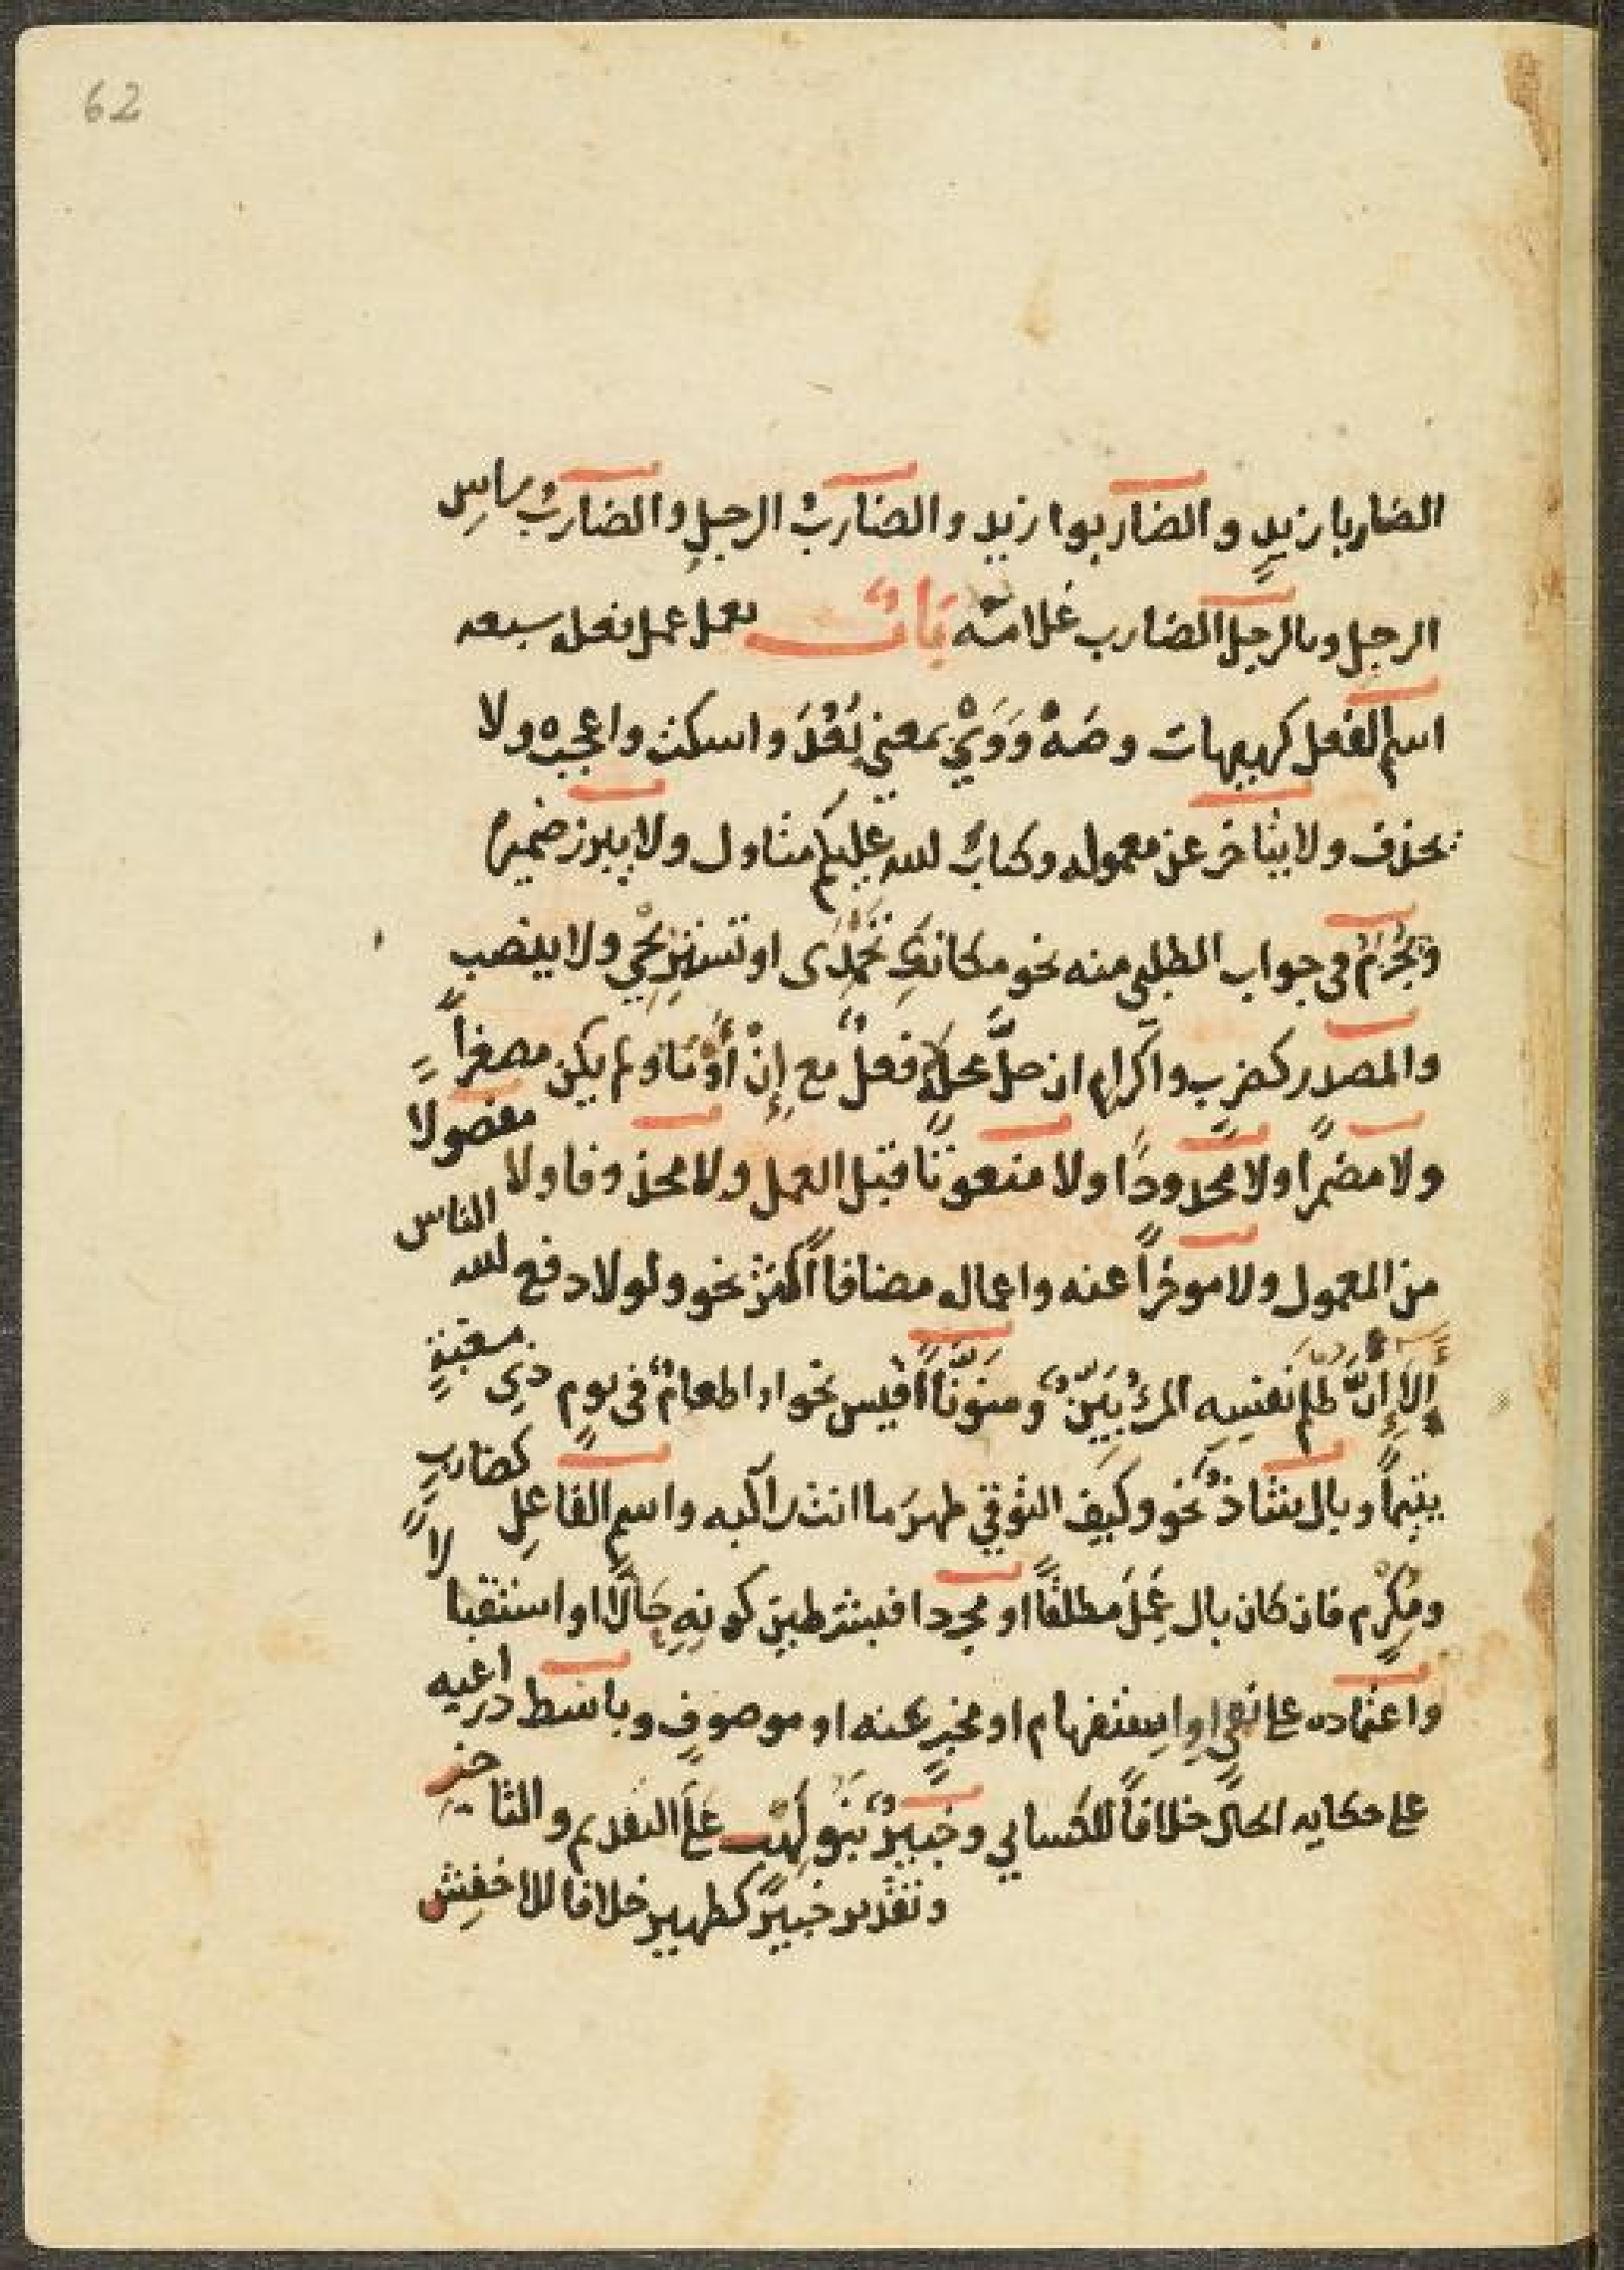 62
الضاربا زيدٍ و الضاربوا زيد و الضاربُ الرجلِ والضاربُ راسِ
الرجلِ وبالرجل الضارب غلامه بَابٌ يعمل عمل فعله سبعه
اسم الفعل كهيهات وصَهْ وَوَيْ بمعني بَعُدَ واسكت واعجب ولا
يحذف ولا يتاخر عن معموله وكتابُ الله عليكم متاول ولا يبرز ضميره
ويُجْزَمُ في جواب الطلبي منه نحو مكانكِ تُحْمَدِي او تستريحي ولا ينصب
والمصدر كضربٍ واكرامٍ ان حلَّ محله فعلٌ مع إنْ أوْ مَا ولم يكن مصغراً
ولا مضمرًا ولا محدودًا ولا منعوتًا قبل العمل ولا محذوفا ولا مفصولا
من المعمول ولا موخراً عنه واعماله مضافا اكثر نحو ولولا دفع الله الناس
إلا إنَّ ظلم نفسِه المرءُ بَيِّنٌ ومنوَّنًا اقيس نحو او اطعامٌ في يومٍ ذي مسغبةٍ
يتيماً وبال شاذٌ نحو وكيف التوقي ظهرَ ما انت راكبه واسم الفاعلِ كضاربٍ
ومُكْرِمٍ فان كان بال عَمِلَ مطلقًا او مجردا فبشرطين كونِهِ حَالًا او استقبالاً
واعتماده على نفيٍ او استفهام او مخبرٍ عنه او موصوفٍ وباسط ذراعيه
على حكايه الحال خلافاً للكسايي وخبيرٌ بَنُو لِهْبٍ عَلَى التقديم والتاخير
وتقدير خبيرٌ كظهير خلافا للاخفش